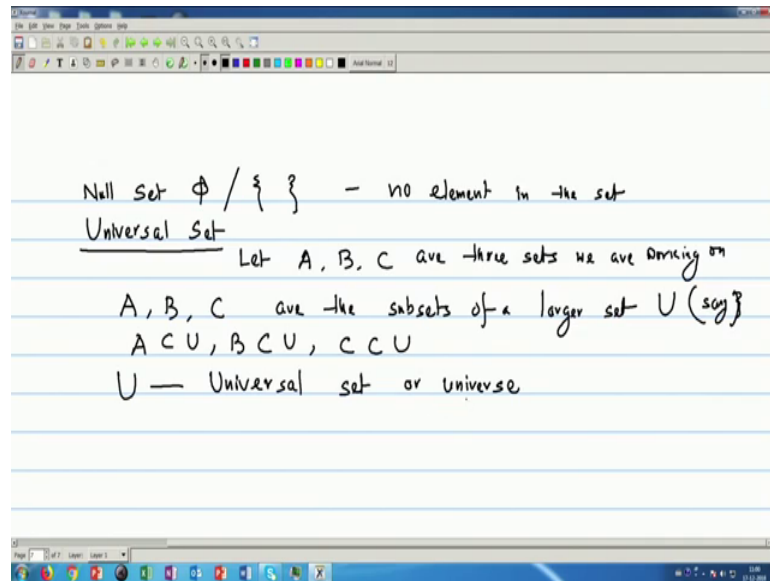 Xournal
File Edit View Page Tools Options Help
Arial Normal 12
Null Set Φ / { } - no element in the set
Universal Set
Let A, B, C are three sets we are working on
A, B, C are the subsets of a larger set U (say}
A ⊂ U, B ⊂ U, C ⊂ U
U — Universal set or universe
Page 7 of 7 Layer: Layer 1